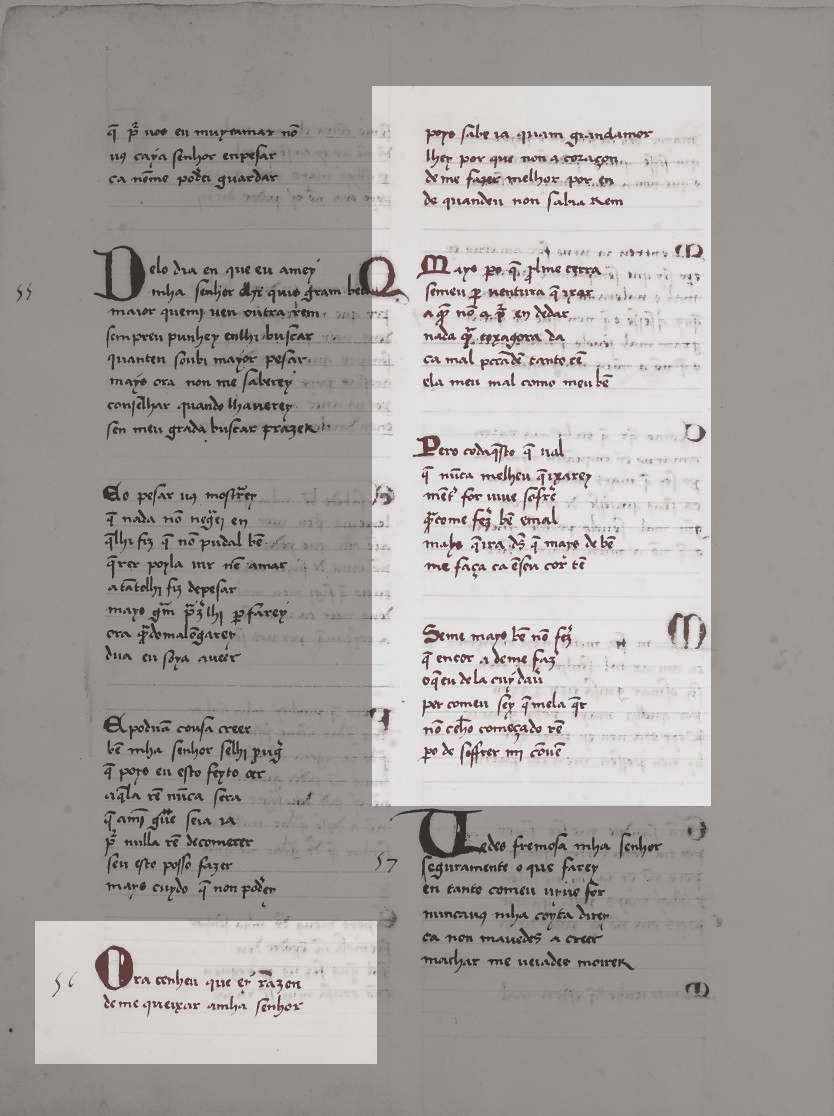 q̃ p̃ uos eu muytamar nõ
uꝯ caya senhor enpesar
ca nẽme podeu guardar
55
Delo dia en que eu amey
mha senhor
maior quemi uen outra rem
sempreu punhey enlhi buscar
quanten soubi mayor pesar
mays ora non me saberey
conselhar quando lhauerey
sen meu grada buscar prazer
E o pesar uꝯ mostrey
q̃ nada nõ en
q̃lhi fiz q̃ nõ pudal bẽ
q̃rer poyla uir nẽ amar
atãtelhi fiz depesar
mays lhi farey
ora
dua eu soya aueer
E poduã cousa creer
bẽ mha senhor selhi
q̃ poys eu esto feyto
aq̃la rẽ nũca sera
q̃ amĩ seia ia
p̃ nulla rẽ decometer
seu esto posso fazer
mays cuydo q̃ non
56
Ora tenheu que ey razon
deme queixar amha senhor
poys sabe ia quam grandamor
lhey por que non a coraçon
deme fazer melhor por en
de quandeu non sabia rem
Mays po q̃ cerra
semeu ventura q̃ixar
a q̃ nõ a p̃ en dedar
nada
ca mal tanto tẽ
ela meu mal como meu bẽ
Pero coda q̃sto q̃ ual
q̃ nũca melheu q̃ixarey
mẽt̃ for uiue sofrẽ
come fez bẽ emal
mays q̃ira d̃s q̃ mays de bẽ
me faça ca ẽseu cor tẽ
Seme mays bẽ nõ fez
q̃ encor a deme faz
oq̃eu dela cuydaũ
per comeu sey q̃mela q̃r
nõ começado rẽ
p̱o de soffrer mi cõuẽ
57
Uedes fremosa mha senhor
seguramente o que farey
en tanto comeu uyue for
nuncauꝯ mha coyta direy
ca non mauedes a creer
machar me ueiades morrer